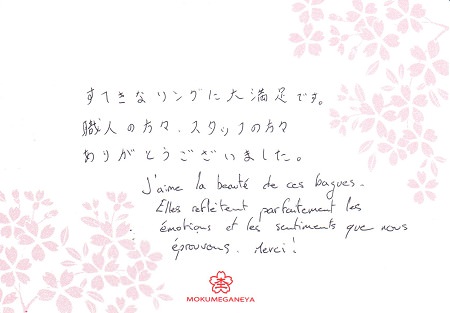 すてきなリングに大満足です。
職人の方々、スタッフの方々
ありがとうございました。
J'aime la beauté de ces bagues.
Elles reflètent parfaitement les
émotions et les sentiments que nous
éprouvons. Merci!
MOKUMEGANEYA